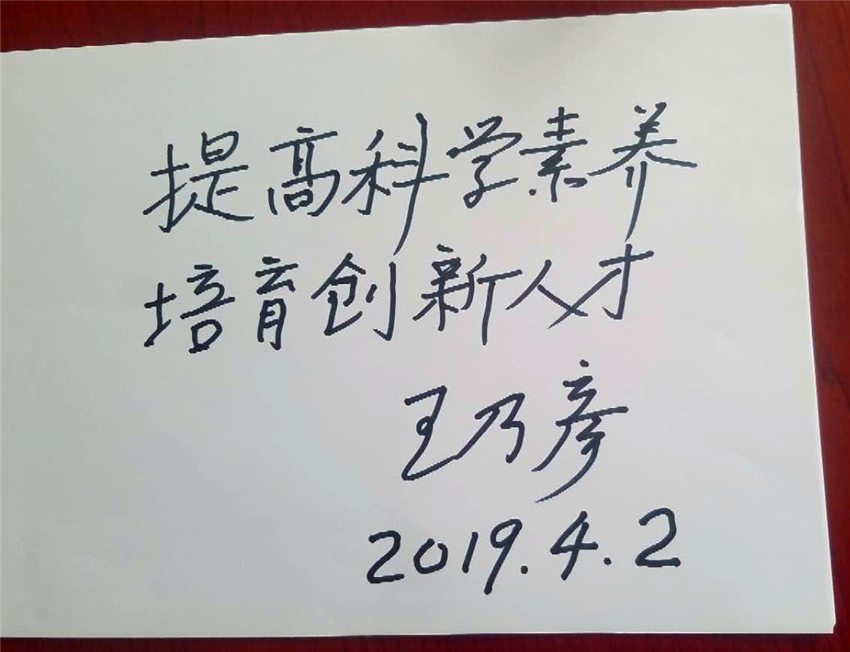 提高科学素养
培育创新人才
王乃彦
2019.4.2